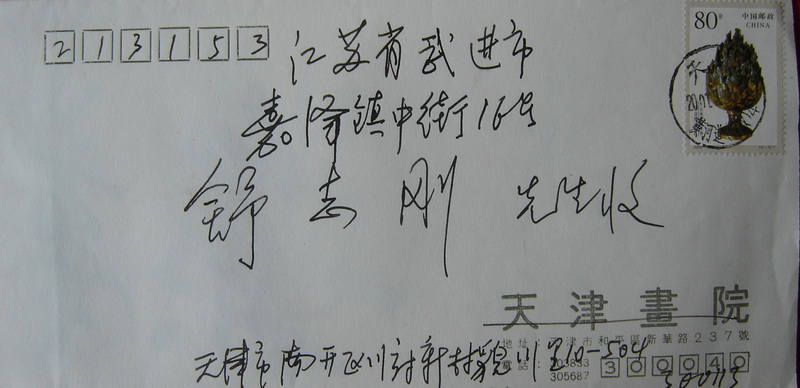 213153
江苏省武进市
80分 中国邮政
CHINA
嘉泽镇中街16号
舒志刚 先生收
天津畫院
地址:天津市和平區新華路237號
305687
300040
天津市南开区川府新村貌川里10-504